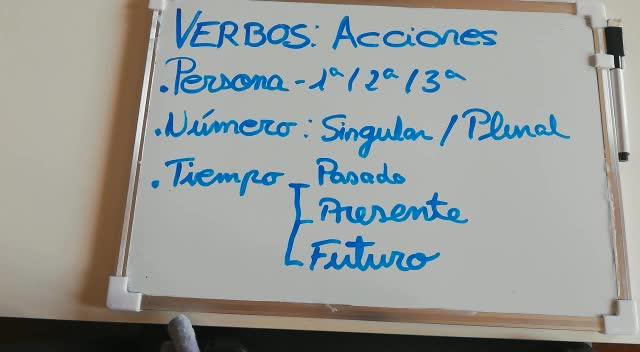 VERBOS: Acciones
. Persona - 1ª / 2ª / 3ª
. Número: Singular / Plural
. Tiempo Pasado
Presente
Futuro